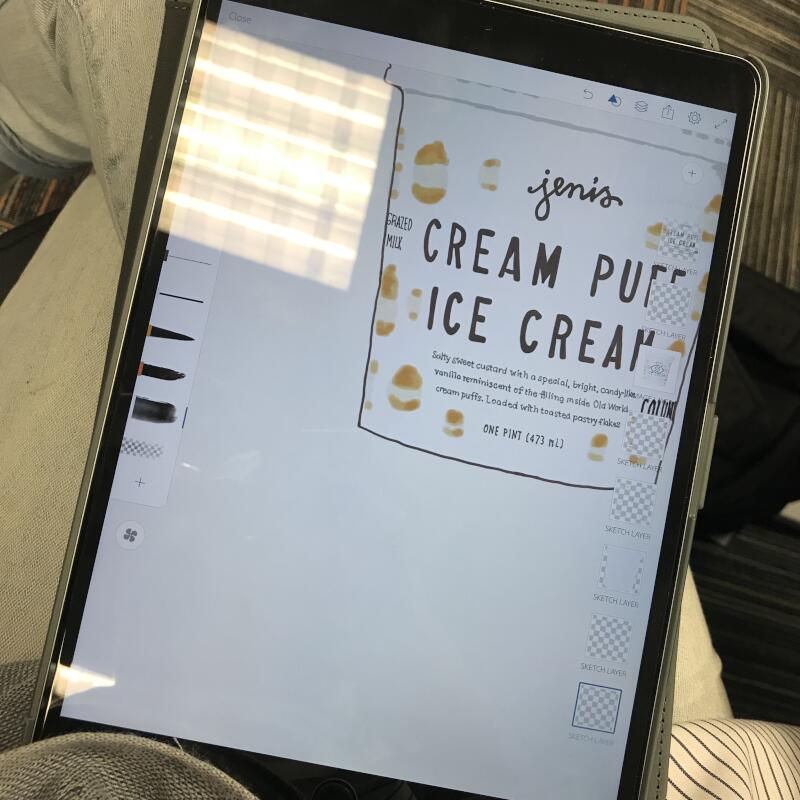 Close
jenis
GRAZED
MILK
CREAM PUFF
ICE CREAM
Salty sweet custard with a special, bright, candy-like
vanilla reminiscent of the filling inside Old World
cream puffs. Loaded with toasted pastry flakes
ONE PINT (473 mL)
SKETCH LAYER
SKETCH LAYER
SKETCH LAYER
SKETCH LAYER
SKETCH LAYER
SKETCH LAYER
SKETCH LAYER